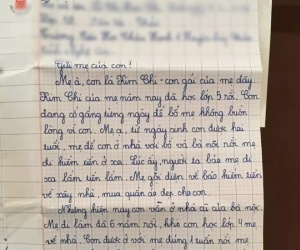 Gửi mẹ của con!
Mẹ à, con là Kim Chi - con gái của mẹ đây.
Kim Chi của mẹ năm nay đã học lớp 5 rồi. Con
đang cố gắng từng ngày để bố mẹ không buồn
lòng vì con. Mẹ ạ, từ ngày sinh con được hai
tuổi, mẹ để con ở nhà với bố và bà nội rồi mẹ
đi kiếm tiền ở xa. Lúc ấy, người ta bảo mẹ đi
xa lắm tiền lắm. Mẹ gửi tiền về bảo kiếm tiền
về xây nhà, mua quần áo đẹp cho con.
Nhưng hiện nay con vẫn ở nhà cũ của bà nội.
Mẹ đi làm đã 6 năm rồi, khi con học lớp 4 mẹ
về nhà. Con được ở với mẹ đúng 1 tuần rồi mẹ